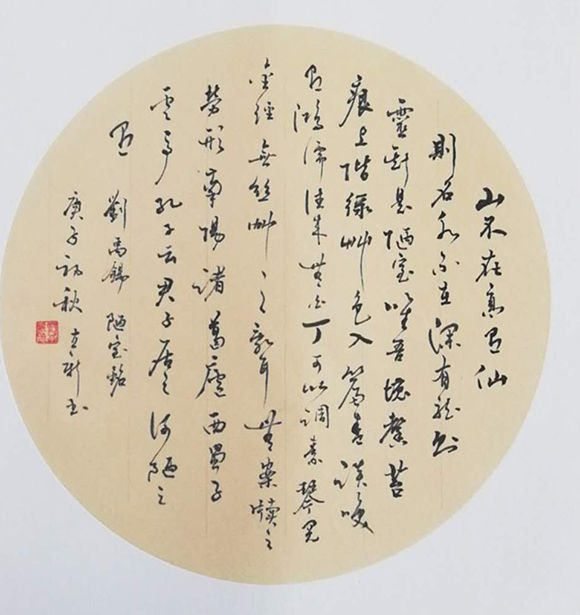 山不在高有仙
則名水不在深有龍則
靈斯是陋室唯吾德馨苔
痕上階綠艸色入簾青談笑
有鴻儒往來無白丁可以調素琴閱
金經無絲竹之亂耳無案牘之
勞形南陽諸葛廬西蜀子
雲亭孔子云君子居之何陋之
有 劉禹錫 陋室銘
庚子初秋 書